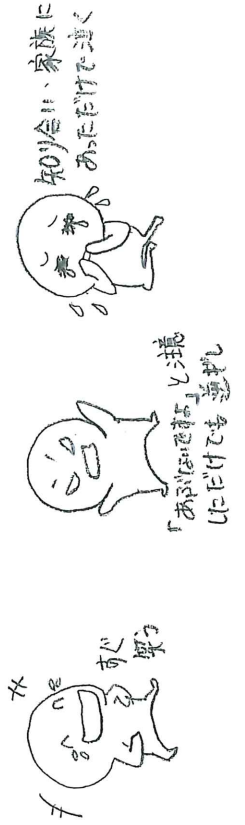 すぐ
笑う
「あぶないですよ」と注意
しただけでも逆ギレ
知り合い、家族に
あっただけで泣く